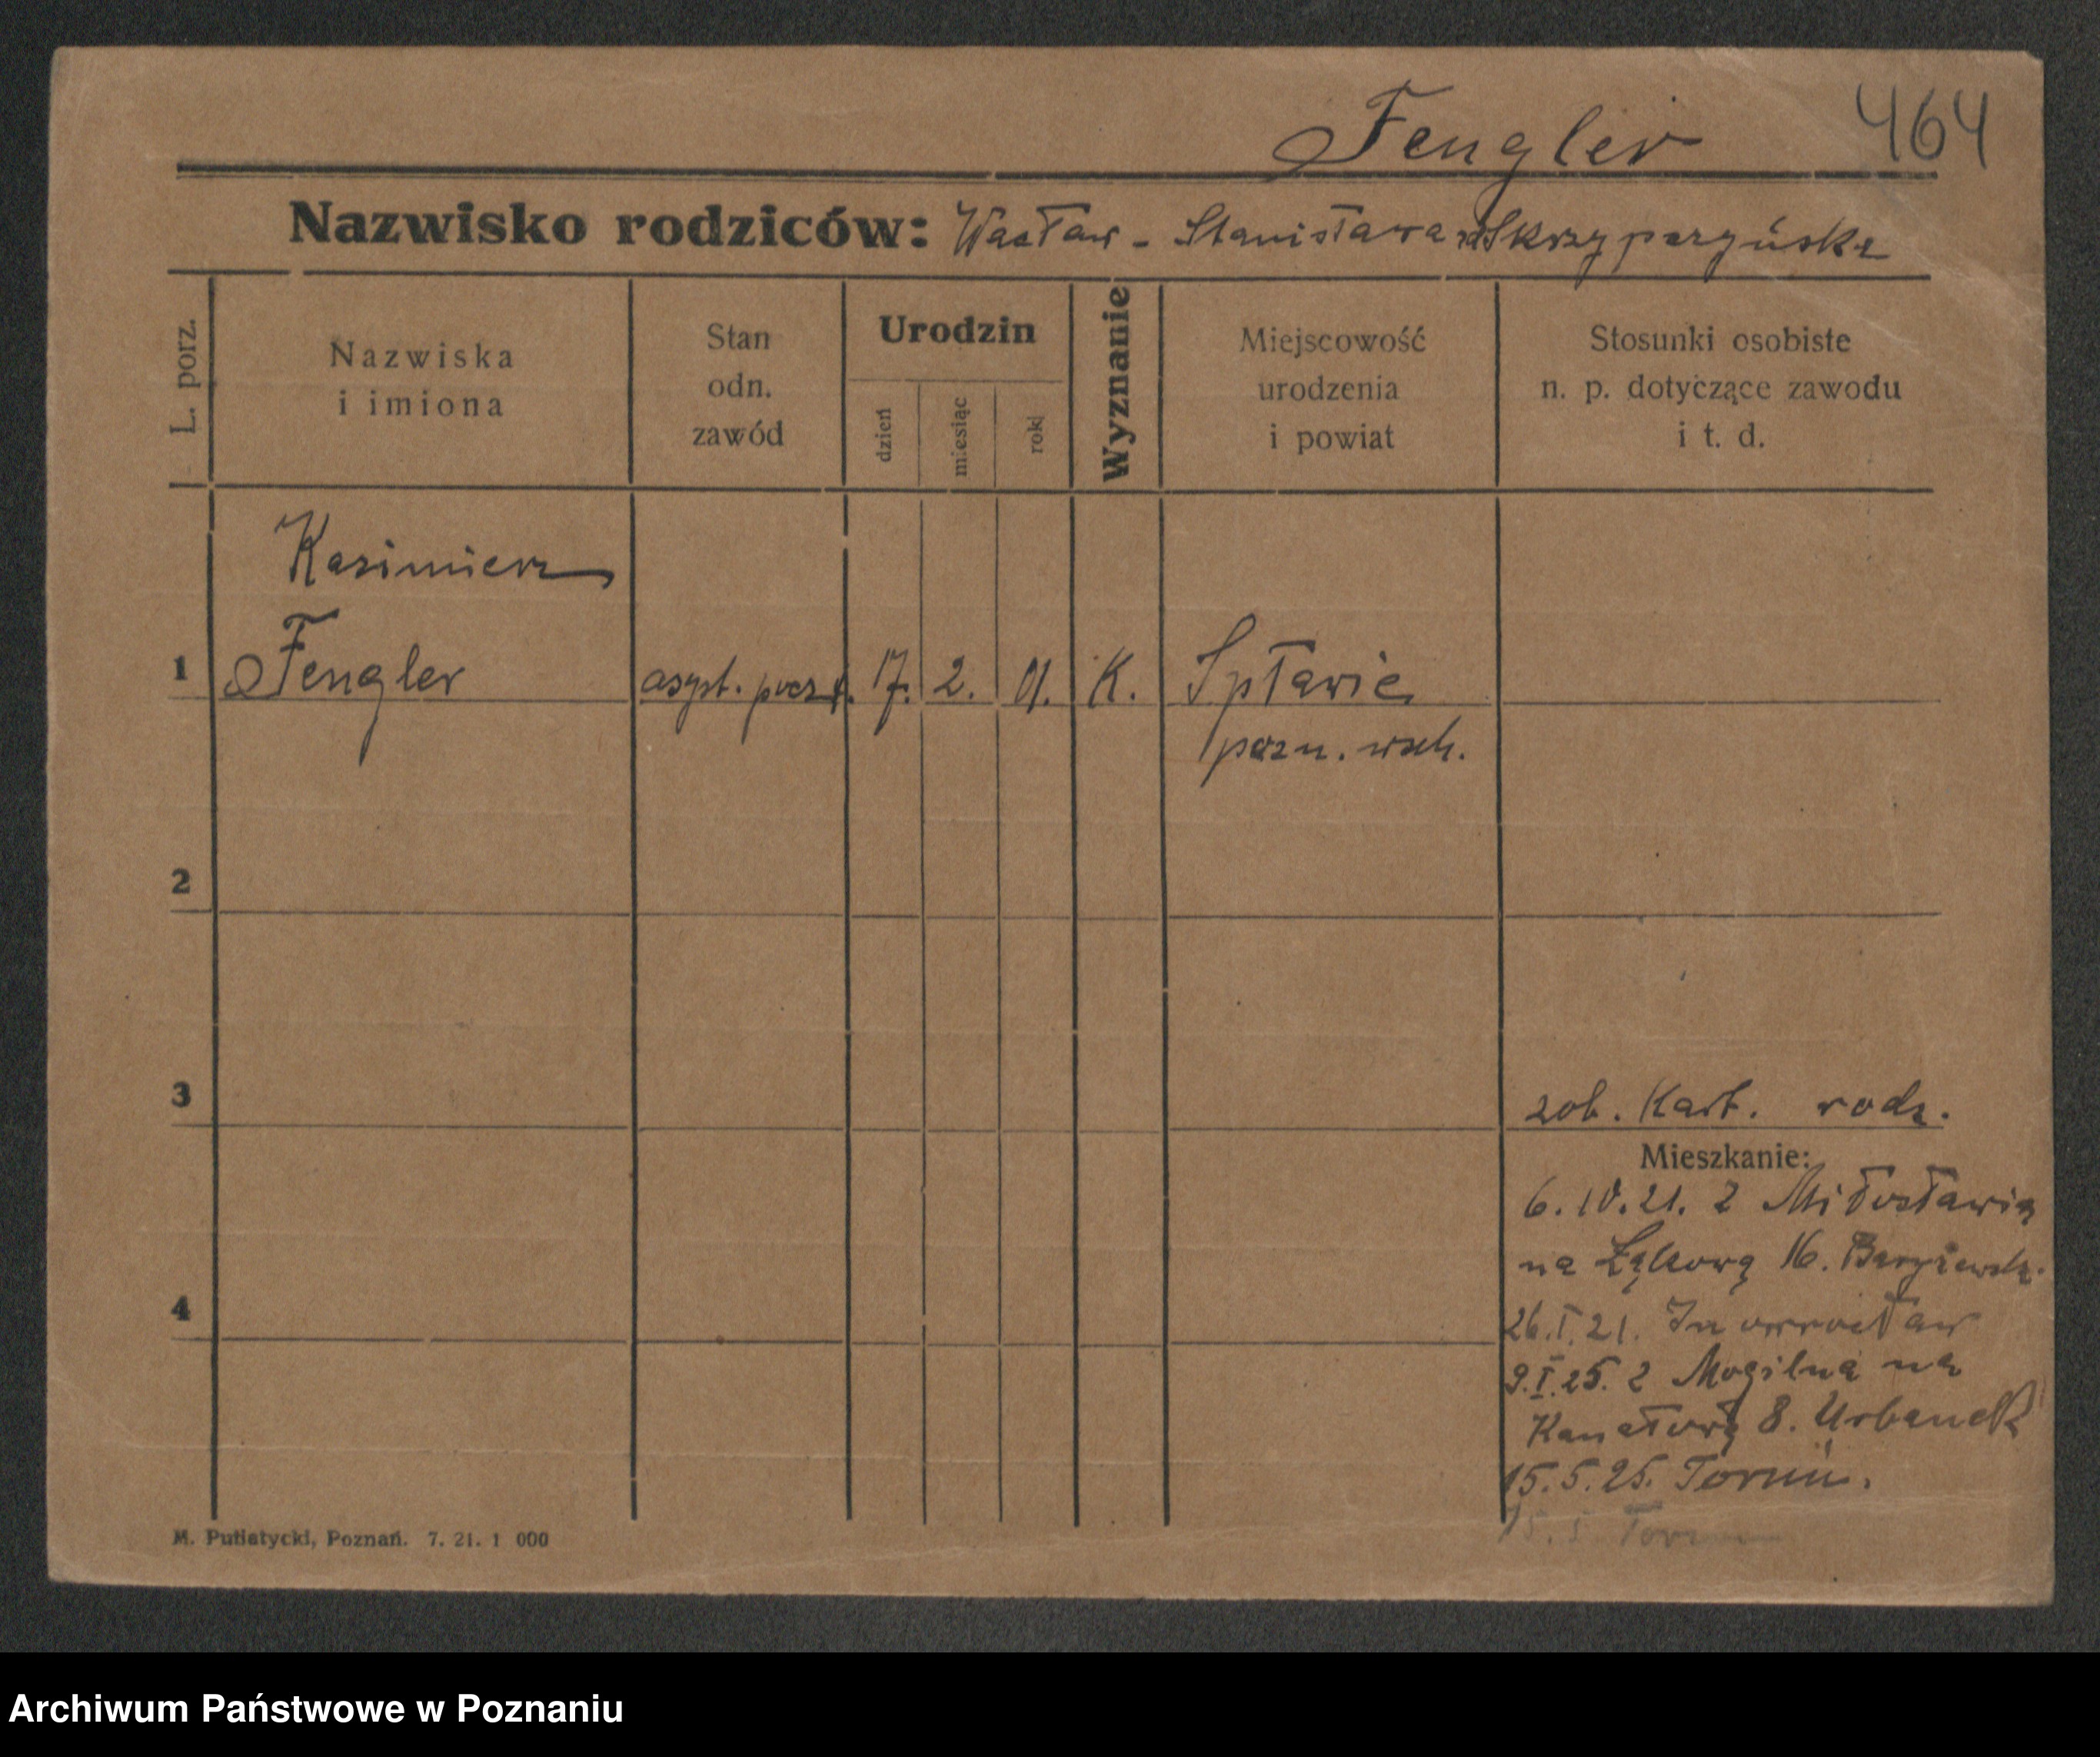 Fengler 464
Nazwisko rodziców: Wacław - Stanisława Skrzypczyńska
L. porz.
Nazwiska
i imiona
Stan
odn.
zawód
Urodzin
dzień
miesiąc
rok
Wyznanie
Miejscowość
urodzenia
i powiat
Stosunki osobiste
n. p. dotyczące zawodu
i t. d.
Kazimierz
1 Fengler asyst. poczt. 17. 2. 01. K. Spławie
pozn. wsch.
2
3
zob. Kart. rodz.
Mieszkanie:
6. IV. 21. z Miłosławia
na Łąkową 16.
4
26. I. 21. Inowrocław
9. I. 25. z Mogilna na
Kanałową 8. Urbanek
15. 5. 25. Toruń.
15. 5. Toruń
M. Putiatycki, Poznań. 7. 21. 1 000
Archiwum Państwowe w Poznaniu